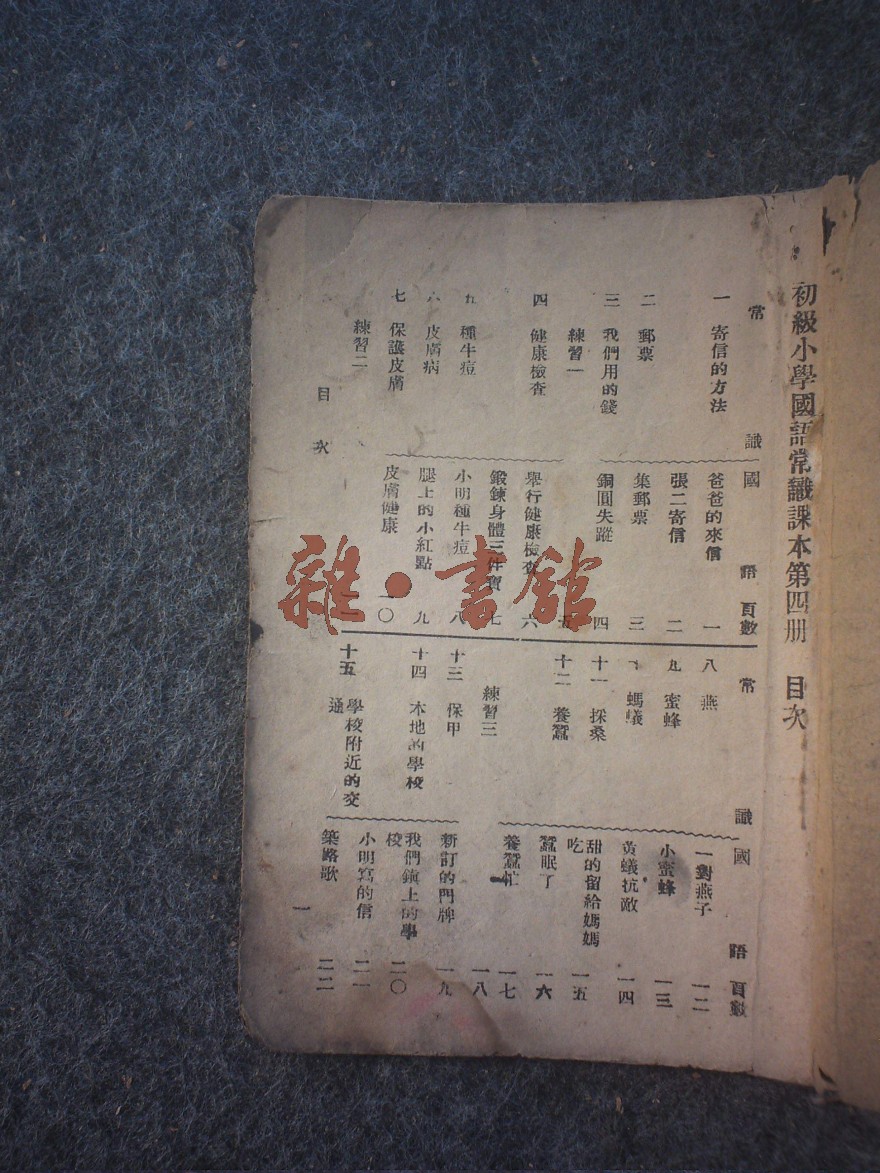 初級小學國語常識課本第四册 目次
常識
國語 頁數
一 寄信的方法
爸爸的來信 一
張二寄信 二
二 郵票
集郵票 三
三 我們用的錢
銅圓失蹤 四
練習一
五
四 健康檢查
舉行健康檢查 六
鍛鍊身體三件寶 七
五 種牛痘
小明種牛痘 八
六 皮膚病
腿上的小紅點 九
七 保護皮膚
皮膚健康 一〇
練習二
目次
常識
國語 頁數
八 燕
一對燕子 一二
九 蜜蜂
小蜜蜂 一三
十 螞蟻
黃蟻抗敵 一四
十一 採桑
甜的留給媽媽吃 一五
十二 養蠶
蠶眠了 一六
養蠶忙 一七
練習三
一八
十三 保甲
新訂的門牌 一九
十四 本地的學校
我們鎮上的學校 二〇
十五 學校附近的交通
小明寫的信 二一
築路歌 二二
一
雜·書館